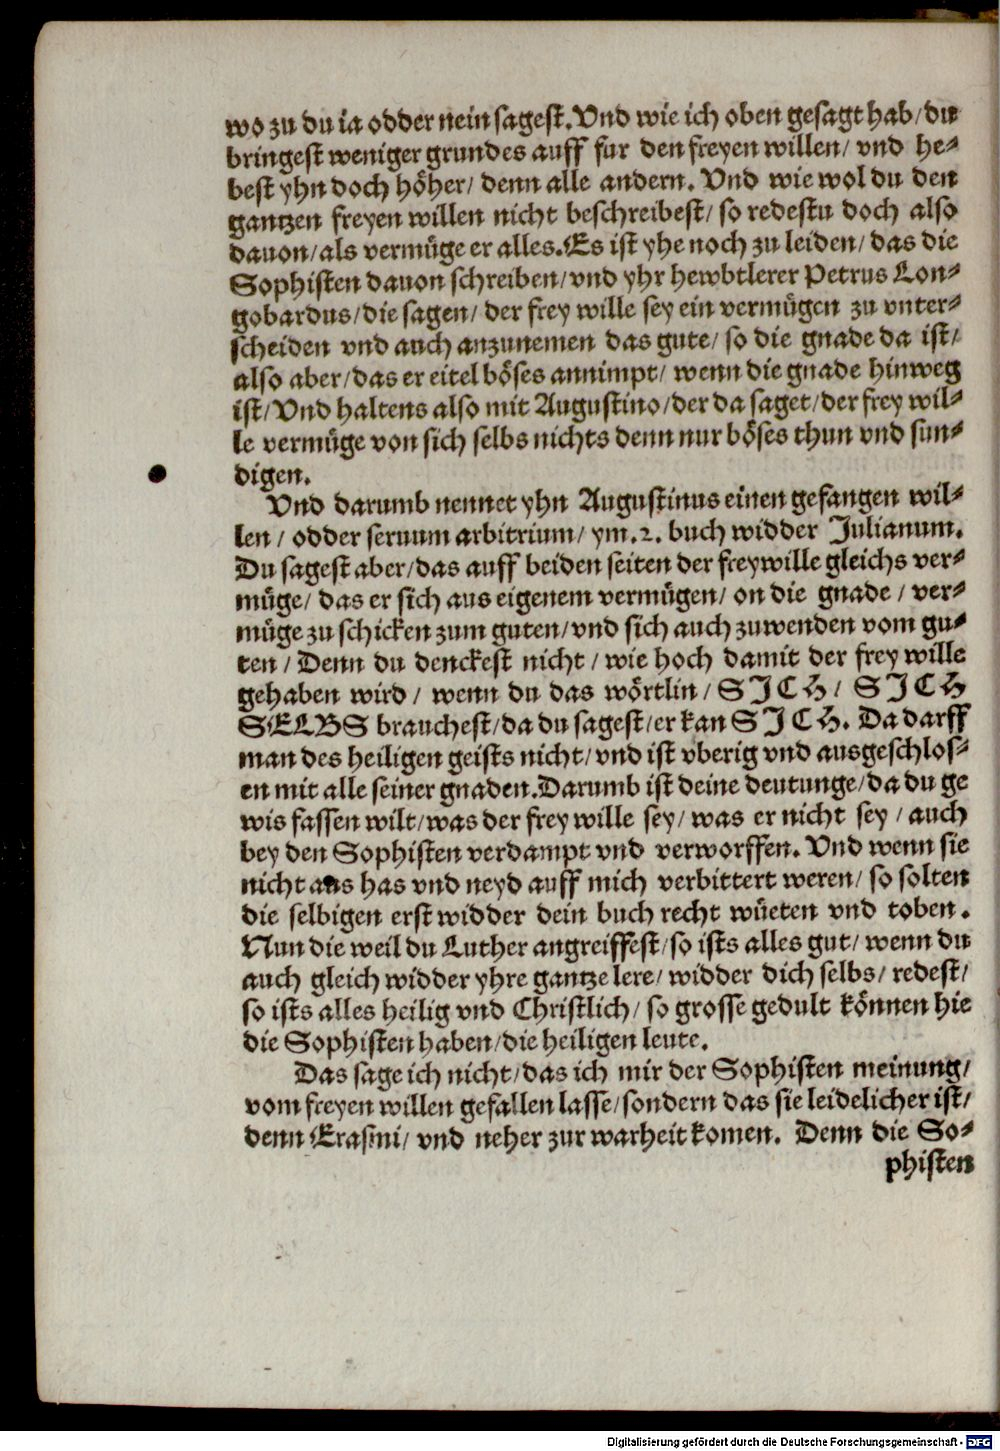 wo zu du ia odder nein sagest. Vnd wie ich oben gesagt hab/ du
bringest weniger grundes auff fur den freyen willen/ vnd he-
best yhn doch höher/ denn alle andern. Vnd wie wol du den
gantzen freyen willen nicht beschreibest/ so redestu doch also
dauon/ als vermüge er alles. Es ist yhe noch zu leiden/ das die
Sophisten dauon schreiben/ vnd yhr hewbtlerer Petrus Lon-
gobardus/ die sagen/ der frey wille sey ein vermügen zu vnter-
scheiden vnd auch anzunemen das gute/ so die gnade da ist/
also aber/ das er eitel böses annimpt/ wenn die gnade hinweg
ist/ Vnd haltens also mit Augustino/ der da saget/ der frey wil-
le vermüge von sich selbs nichts denn nur böses thun vnd sun-
digen.
Vnd darumb nennet yhn Augustinus einen gefangen wil-
len/ odder seruum arbitrium/ ym .2. buch widder Julianum.
Du sagest aber/ das auff beiden seiten der freywille gleichs ver-
müge/ das er sich aus eigenem vermügen/ on die gnade/ ver-
müge zu schicken zum guten/ vnd sich auch zuwenden vom gu-
ten/ Denn du denckest nicht/ wie hoch damit der frey wille
gehaben wird/ wenn du das wörtlin/ SJCH/ SJCH
SELBS brauchest/ da du sagest/ er kan SJCH. Da darff
man des heiligen geists nicht/ vnd ist vberig vnd ausgeschlos-
en mit alle seiner gnaden. Darumb ist deine deutunge/ da du ge
wis fassen wilt/ was der frey wille sey/ was er nicht sey/ auch
bey den Sophisten verdampt vnd verworffen. Vnd wenn sie
nicht aus has vnd neyd auff mich verbittert weren/ so solten
die selbigen erst widder dein buch recht wüeten vnd toben.
Nun die weil du Luther angreiffest/ so ists alles gut/ wenn du
auch gleich widder yhre gantze lere/ widder dich selbs/ redest/
so ists alles heilig vnd Christlich/ so grosse gedult können hie
die Sophisten haben/ die heiligen leute.
Das sage ich nicht/ das ich mir der Sophisten meinung/
vom freyen willen gefallen lasse/ sondern das sie leidelicher ist/
denn Erasmi/ vnd neher zur warheit komen. Denn die So-
phisten
Digitalisierung gefördert durch die Deutsche Forschungsgemeinschaft - DFG